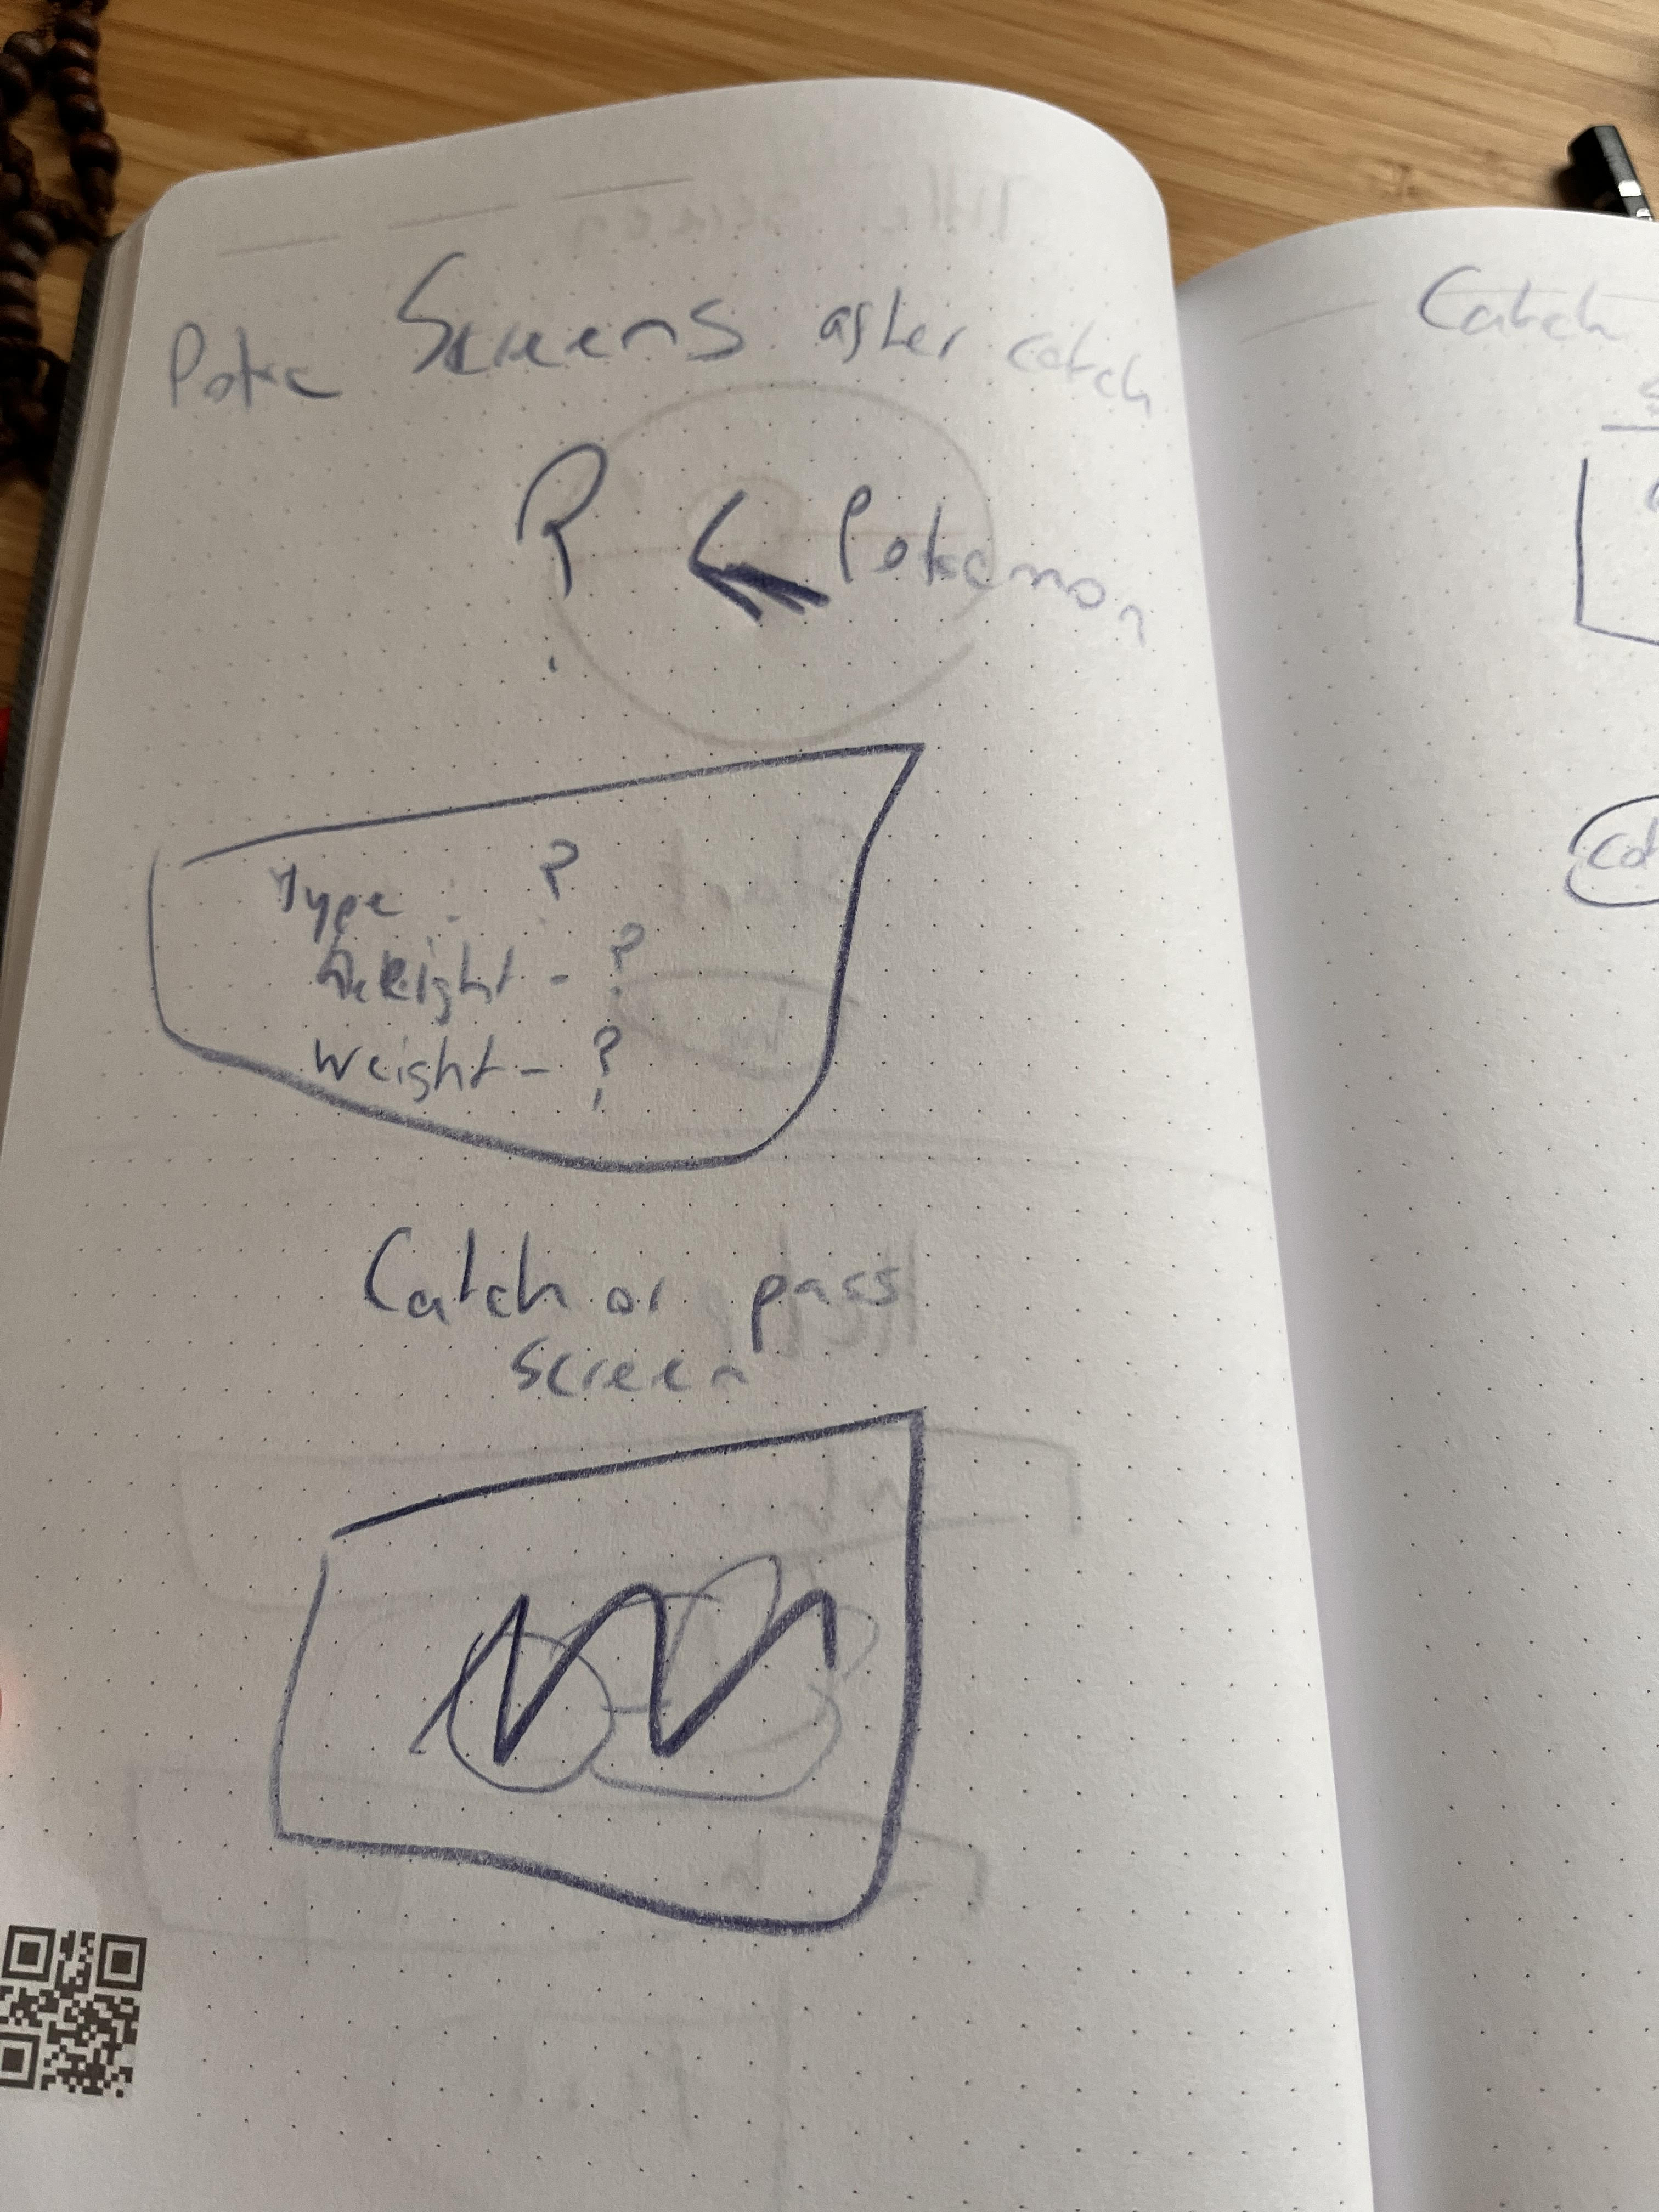 Poke Screens after catch
? ← Pokemon
Type : ?
Height - ?
Weight - ?
Catch or pass
Screen
Catch